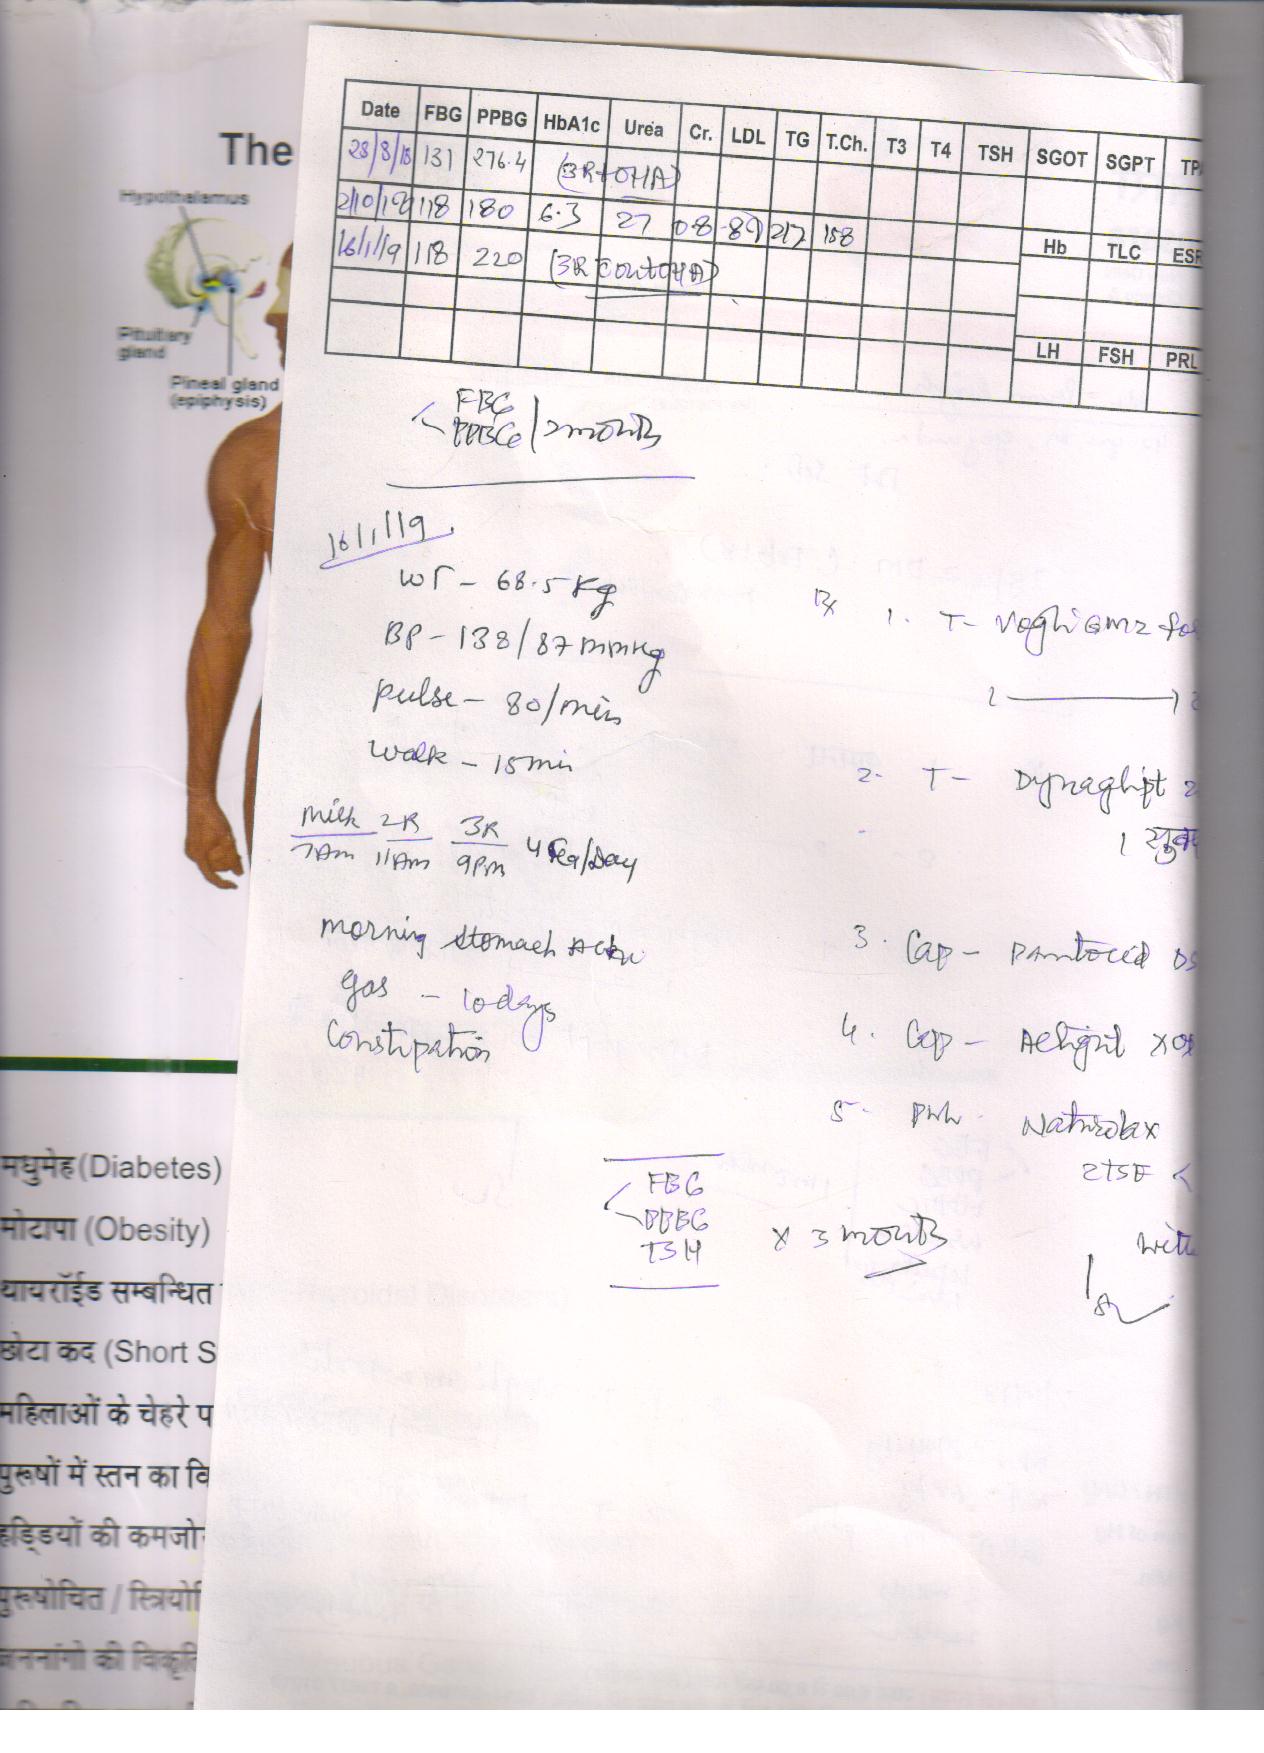 The
Hypothalamus
Pituitary
gland
Pineal gland
(epiphysis)
Date FBG PPBG HbA1c Urea Cr. LDL TG T.Ch. T3 T4 TSH SGOT SGPT
28/8/18 131 276.4 (3R+OHA)
2/10/18 118 180 6.3 27 0.8 89 217 158
Hb TLC
16/1/19 118 220 (3R cont OHA)
LH FSH PRL
FBG
PPBG / 2 months
16/1/19
WT - 68.5 Kg
BP - 138/87 mmHg
Pulse - 80/min
Walk - 15 min
Milk 2R 3R 4 Tea/Day
7Am 11Am 9Pm
morning stomach
gas - 10 days
Constipation
Rx 1. T- Vogli GM2
1 1
2. T- Dynaglipt
1 सुबह
3. Cap -
4. Cap -
5. Naturolax
2TSF <
with
FBG
PPBG
TSH x 3 months
मधुमेह (Diabetes)
मोटापा (Obesity)
थायरॉईड सम्बन्धित
छोटा कद (Short S
महिलाओं के चेहरे प
पुरूषों में स्तन का वि
हड्डियों की कमजो
पुरूषोचित / स्त्रियो
जननांगो की विकृति